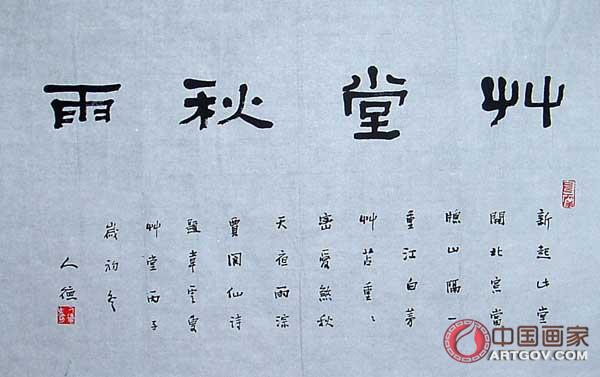 艸堂秋雨
新起此堂
開北窓當
牕山隔一
重江白茅
艸苫重〻
密愛煞秋
天夜雨淙
賈閬仙詩
題韋雲叟
艸堂丙子
歲初冬
人德
中国画家
ARTGOV.COM